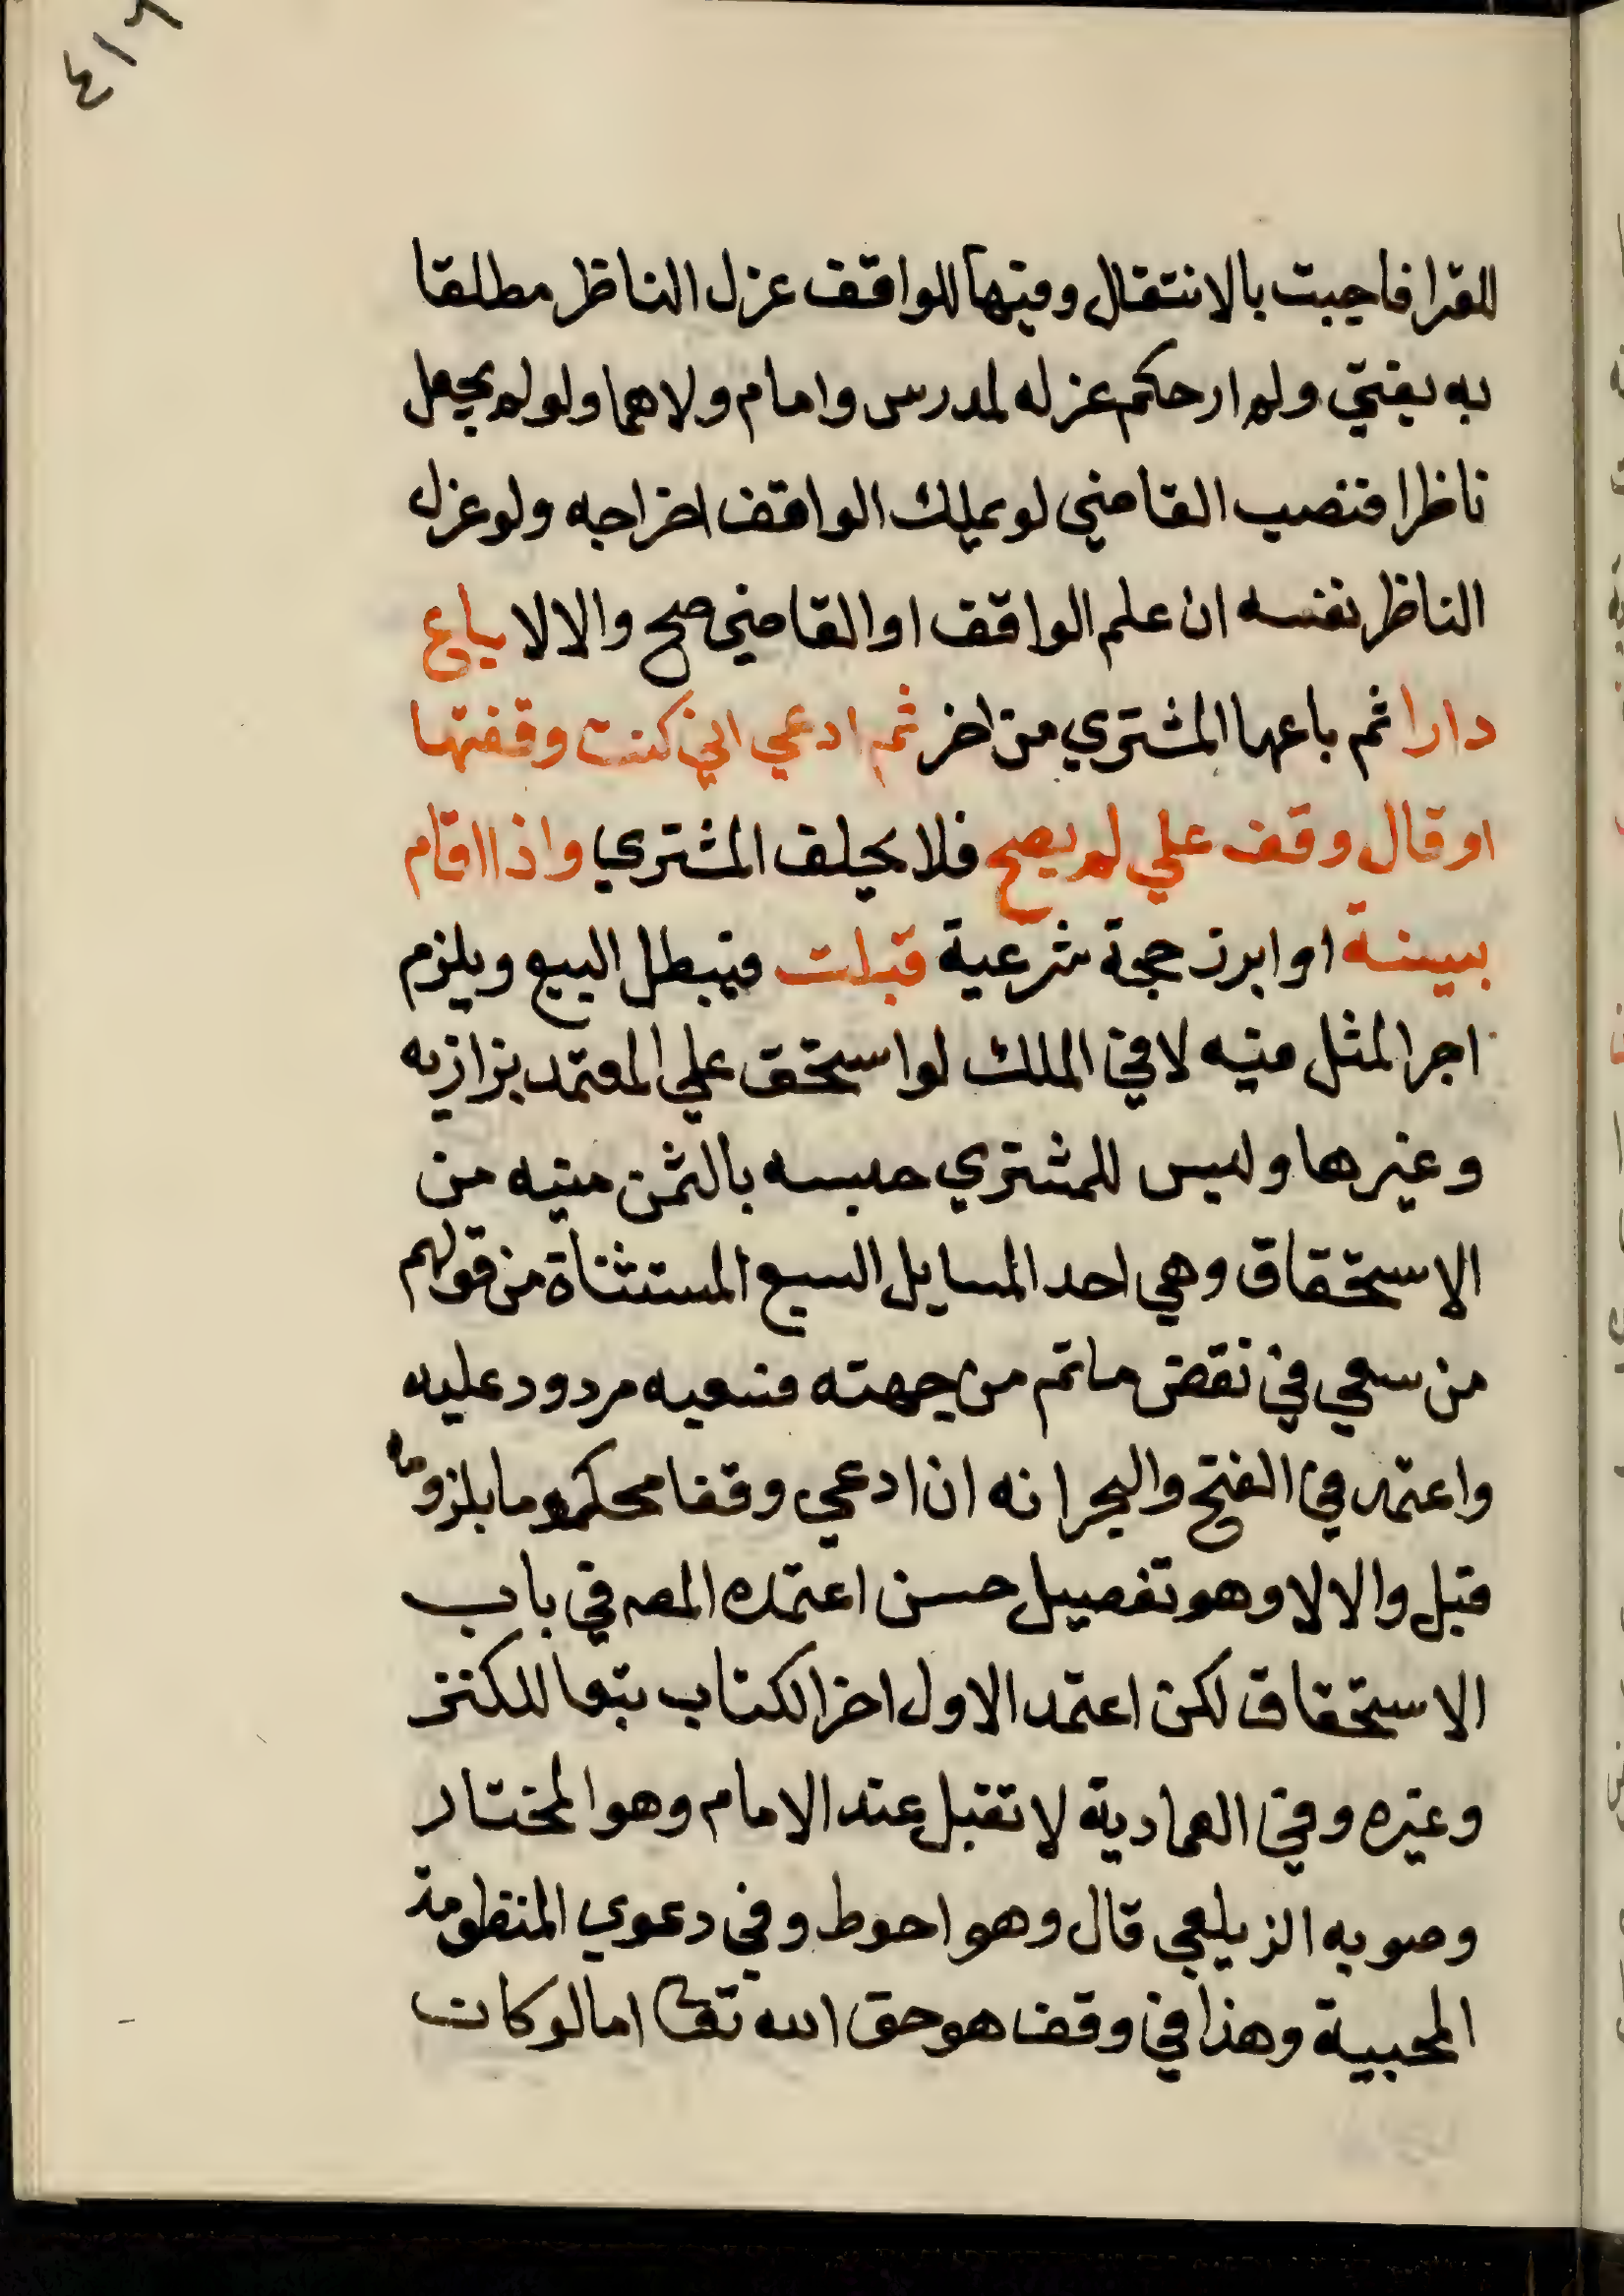 ٤١٦
للفقرا فاجبت بالانتقال وفيها للواقف عزل الناظر مطلقا
به يفتي ولم ار حكم عزله لمدرس وامام ولاهما ولو لم يجعل
ناظرا فنصب القاضي لو يملك الواقف اخراجه ولو عزل
الناظر نفسه ان علم الواقف او القاضي صح والا لا باع
دارا ثم باعها المشتري من اخر ثم ادعي اني كنت وقفتها
او قال وقف علي لم يصح فلا يحلف المشتري واذا اقام
ببينة او ابرز حجة شرعية قبلت فيبطل البيع ويلزم
اجر المثل فيه لا في الملك لو استحق علي المعتمد بزازيه
وغيرها وليس للمشتري حبسه بالثمن منيه من
الاستحقاق وهي احد المسايل السبع المستثناة من قولهم
من سعي في نقض ما تم من جهته فسعيه مردود عليه
واعتمد في الفتح والبحر انه ان ادعي وقفا محكوما بلزومه
قبل والا لا وهو تفصيل حسن اعتمده المصه في باب
الاستحقاق لكن اعتمد الاول اخر الكتاب تبعا للكنز
وغيره وفي العمادية لا تقبل عند الامام وهو المختار
وصوبه الزيلعي قال وهو احوط وفي دعوي المنظومة
المحبية وهذا في وقف هو حق الله تعا اما لو كان